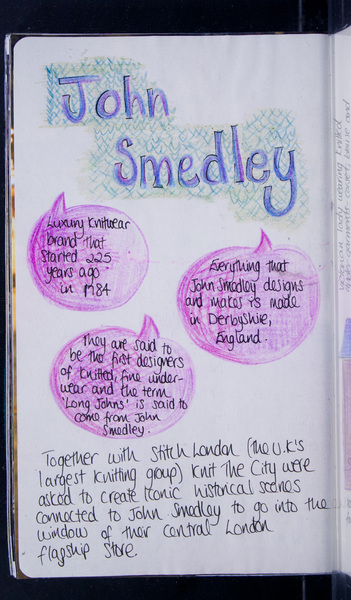 John
Smedley
Luxury Knitwear
brand that
started 225
years ago
in 1784
Everything that
John Smedley designs
and makes is made
in Derbyshire,
England.
They are said to
be the first designers
of knitted, fine under-
wear and the term
'Long Johns' is said to
come from John
Smedley.
Together with Stitch London (the U.K's
largest knitting group) Knit The City were
asked to create iconic historical scenes
connected to John Smedley to go into the
window of their central London
flagship store.